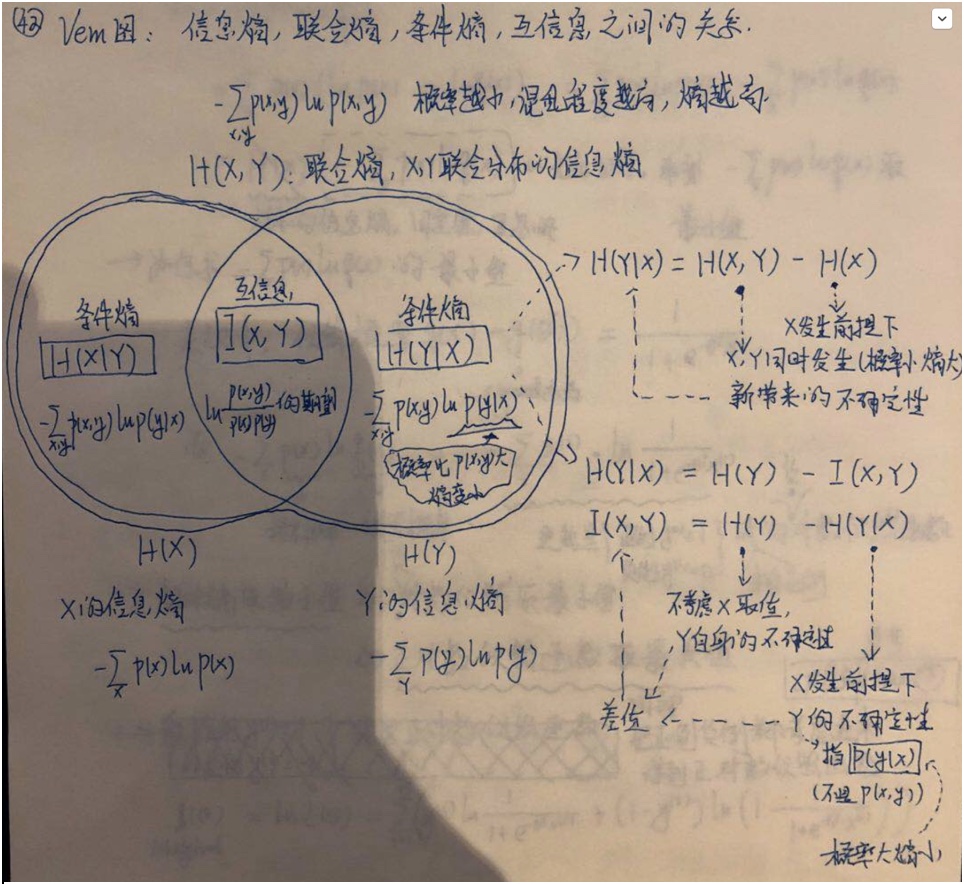 ㊷ Venn图：信息熵，联合熵，条件熵，互信息之间的关系.
-∑x,y p(x,y) ln p(x,y) 概率越小，混乱程度越高，熵越高.
H(X,Y)：联合熵，X,Y联合分布的信息熵
条件熵
H(X|Y)
-∑x,y p(x,y) ln p(y|x)
互信息
I(X,Y)
ln p(x,y)/p(x)p(y) 的期望
条件熵
H(Y|X)
-∑x,y p(x,y) ln p(y|x)
概率比p(x,y)大
熵变小
H(X)
X的信息熵
-∑x p(x) ln p(x)
H(Y)
Y的信息熵
-∑Y p(y) ln p(y)
H(Y|X) = H(X,Y) - H(X)
X发生前提下
X,Y同时发生(概率小熵大)
新带来的不确定性
H(Y|X) = H(Y) - I(X,Y)
I(X,Y) = H(Y) - H(Y|X)
不考虑X取值，
Y自身的不确定性
X发生前提下
差值
Y的不确定性
指 p(y|x)
(不是p(x,y))
概率大熵小